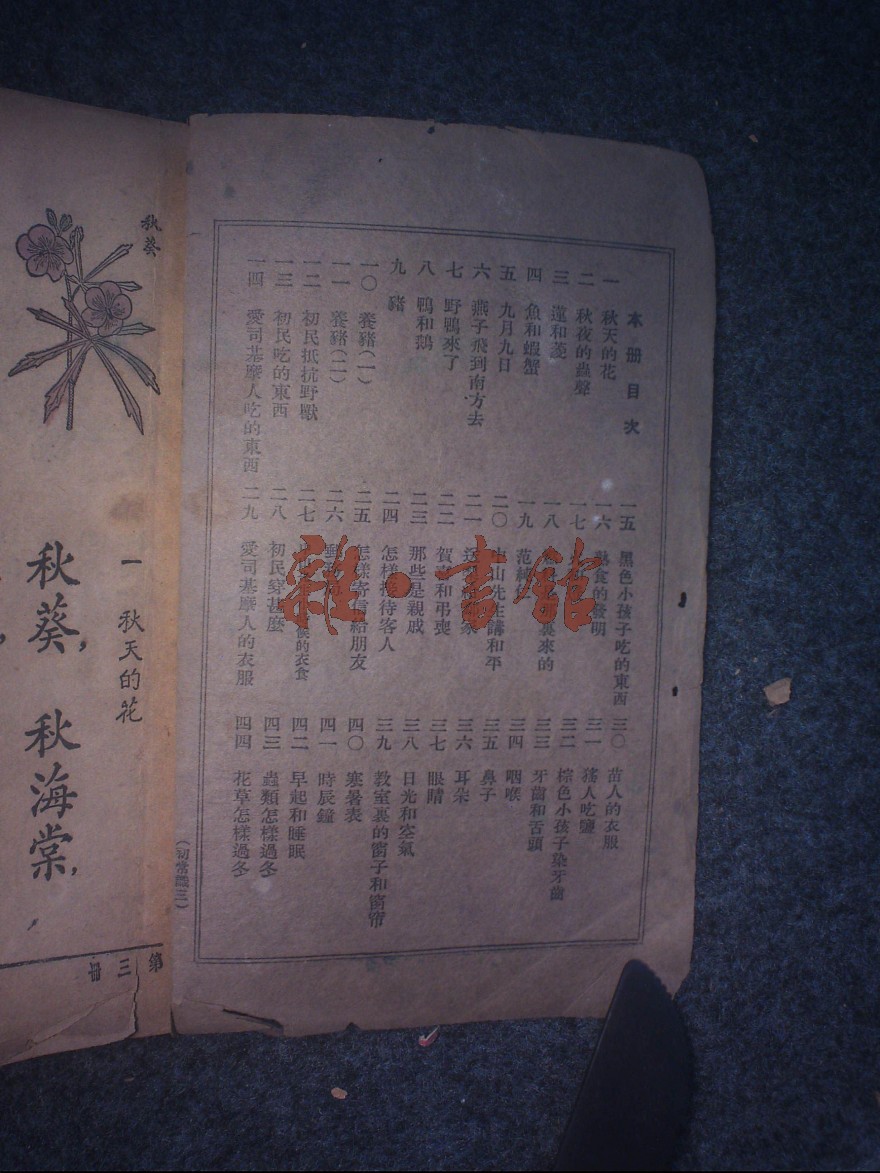 本冊目次
一 秋天的花
二 秋夜的蟲聲
三 蓮和菱
四 魚和蝦蟹
五 九月九日
六 燕子飛到南方去
七 野鴨來了
八 鴨和鵝
九 豬
一〇 養豬(一)
一一 養豬(二)
一二 初民抵抗野獸
一三 初民吃的東西
一四 愛司基摩人吃的東西
一五 黑色小孩子吃的東西
一六 熟食的發明
一七
一八 裏來的
一九 范純
二〇 中山先生講和平
二一
二二 賀喜和弔喪
二三 那些是親戚
二四 怎樣接待客人
二五 怎樣寄信給朋友
二六 郵
二七 的衣食
二八 初民穿甚麼
二九 愛司基摩人的衣服
三〇 苗人的衣服
三一 猺人吃鹽
三二 棕色小孩子染牙齒
三三 牙齒和舌頭
三四 咽喉
三五 鼻子
三六 耳朵
三七 眼睛
三八 日光和空氣
三九 教室裏的窗子和窗帘
四〇 寒暑表
四一 時辰鐘
四二 早起和睡眠
四三 蟲類怎樣過冬
四四 花草怎樣過冬
(初常識三)
秋葵
一 秋天的花
秋葵,秋海棠,
第三冊
雜·書館